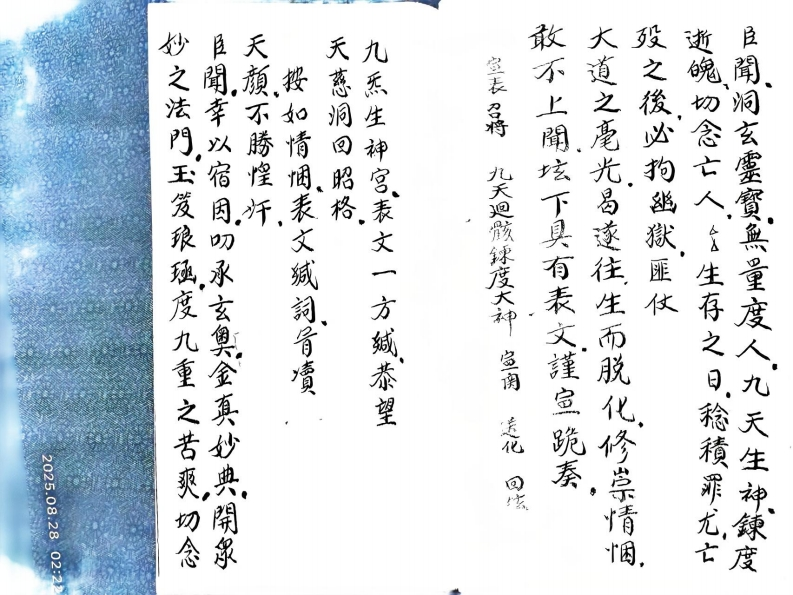 臣聞、洞玄靈寶、無量度人、九天生神、鍊度
逝魄、切念亡人、厶生存之日、稔積罪尤、亡
歿之後、必拘幽獄、匪仗
大道之毫光、曷遂往生而脫化、修崇情悃、
敢不上聞、坛下具有表文、謹宣跪奏。
宣表 召將 九天迴骸鍊度大神 宣関 送化 回
九炁生神宮、表文一方緘、恭望
天慈洞回昭格、
按如情悃、表文緘詞、肯瀆
天顏、不勝惶汗、
臣聞、幸以宿因、叨承玄奧、金真妙典、開眾
妙之法門、玉笈琅函、度九重之苦爽、切念
2025.08.28 02:22